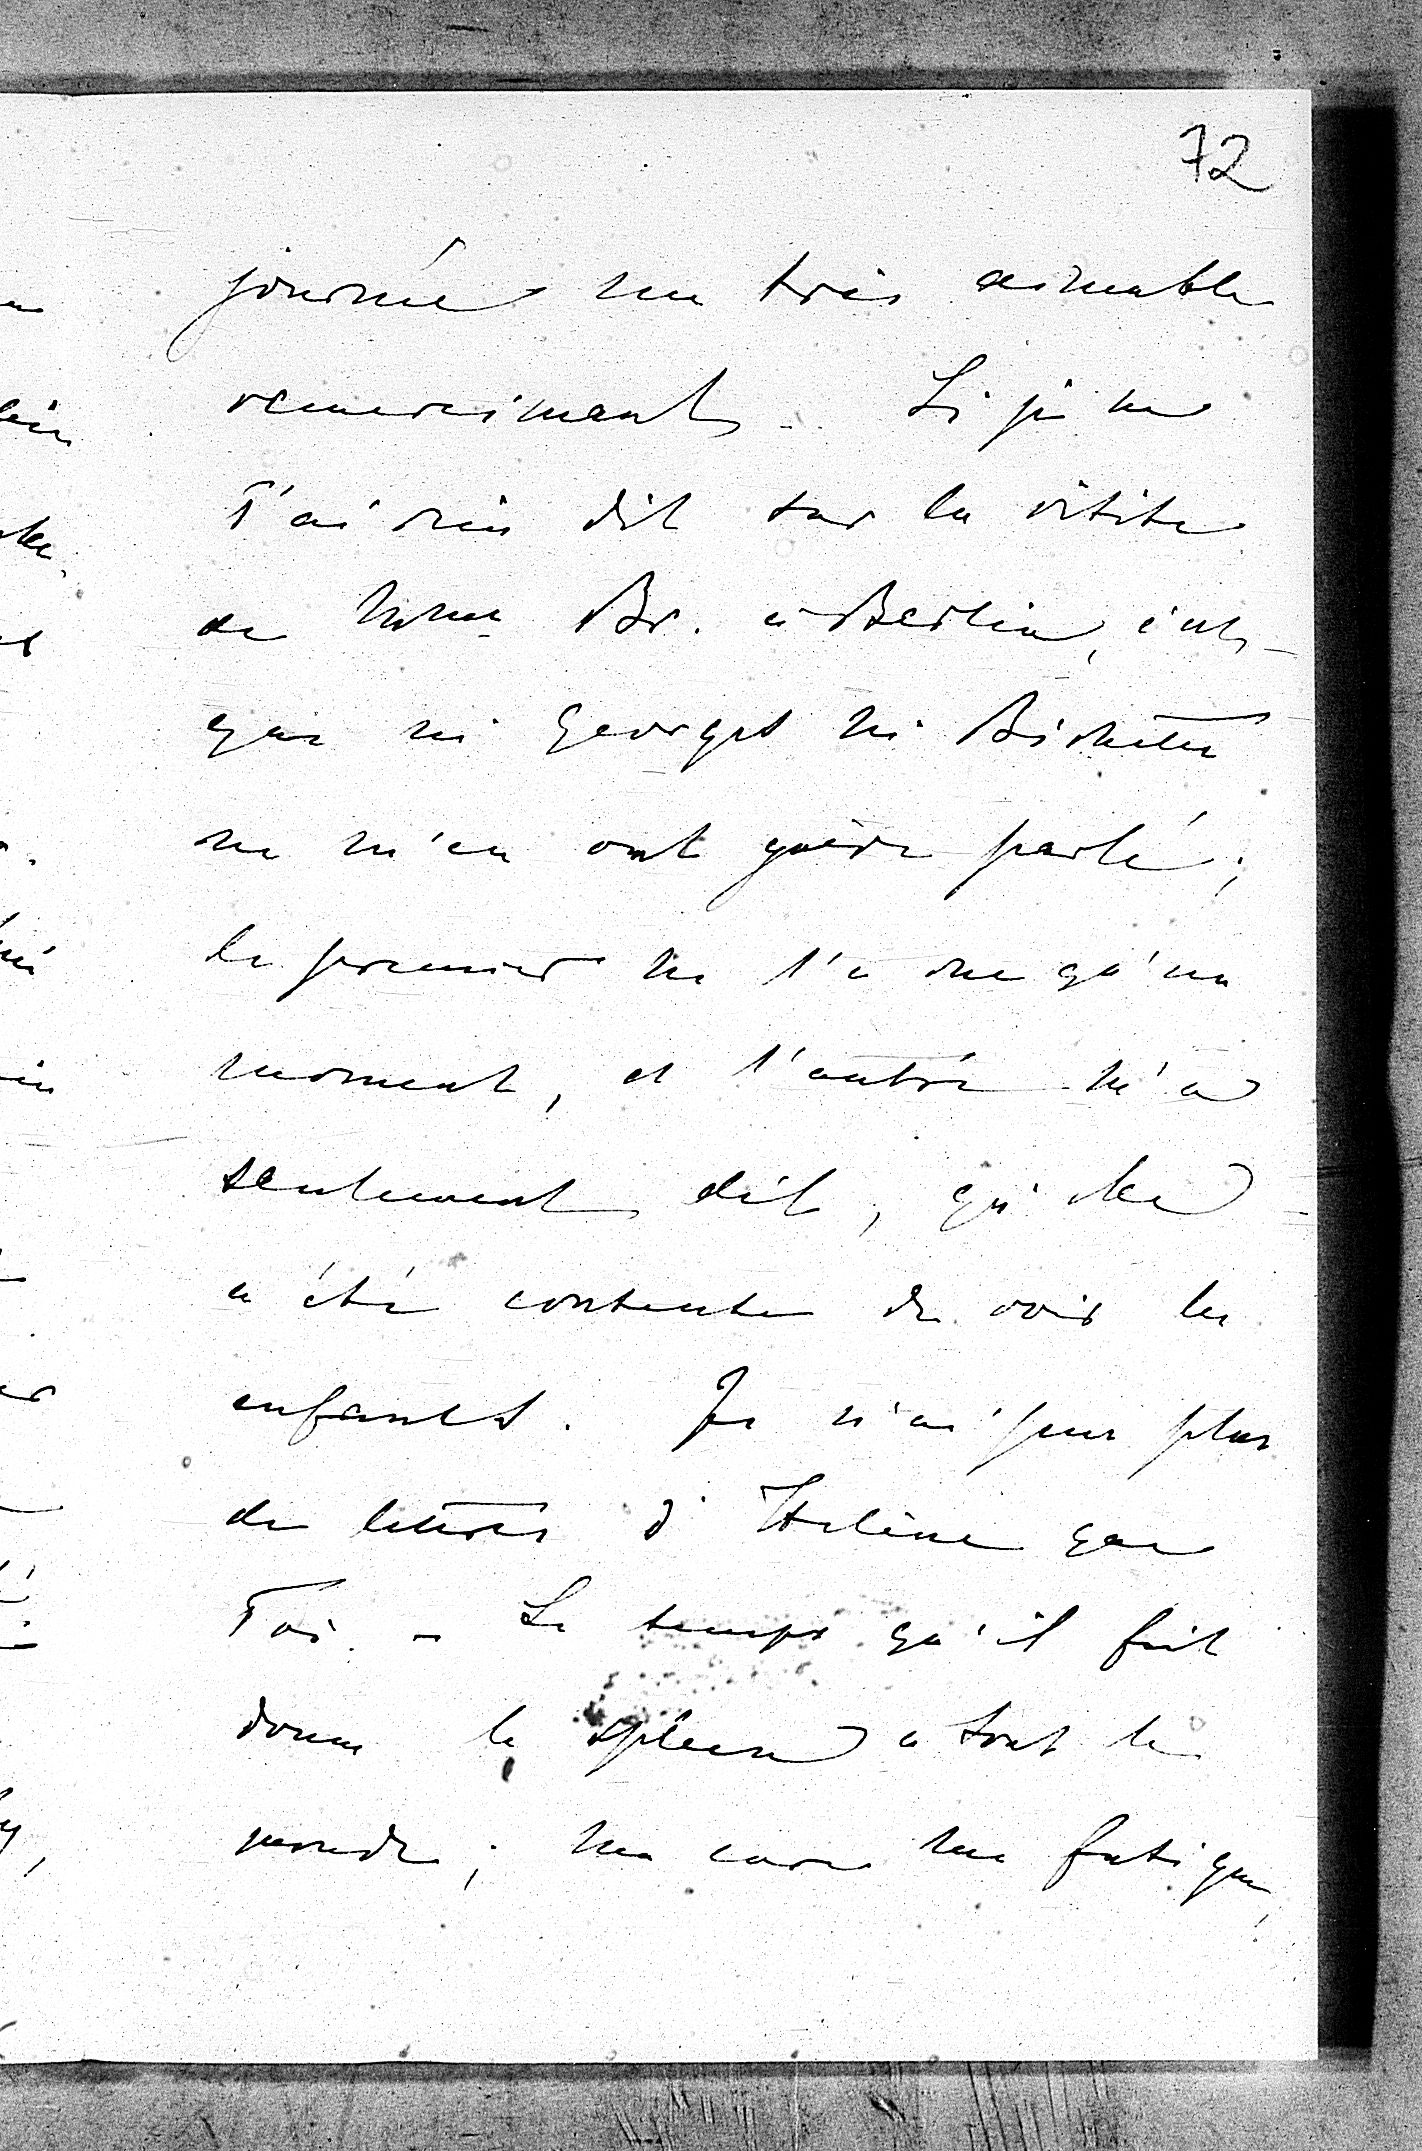 72
journée un très aimable
remerciment. Si je ne
T'ai rien dit sur la visite
de Mme Br. à Berlin, c'est
que ni Georges ni
ne m'en ont guère parlé;
le premier ne l'a vue qu'un
moment, et l'autre m'a
seulement dit, qu'elle
a été contente de voir les
enfants. Je n'ai pas plus
de lettres d'Helène que
Toi. – Le temps qu'il fait
donne le spleen à tout le
monde; ma cure me fatigue,